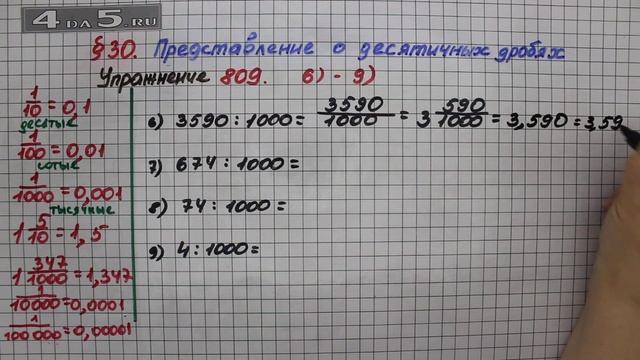 4DA5.RU
§30. Представление о десятичных дробях
Упражнение 809. 6) - 9)
1/10 = 0,1
десятые
1/100 = 0,01
сотые
1/1000 = 0,001
тысячные
1 5/10 = 1,5
1 347/1000 = 1,347
1/10000 = 0,0001
1/100 000 = 0,00001
6) 3590 : 1000 = 3590/1000 = 3 590/1000 = 3,590 = 3,59
7) 674 : 1000 =
8) 74 : 1000 =
9) 4 : 1000 =